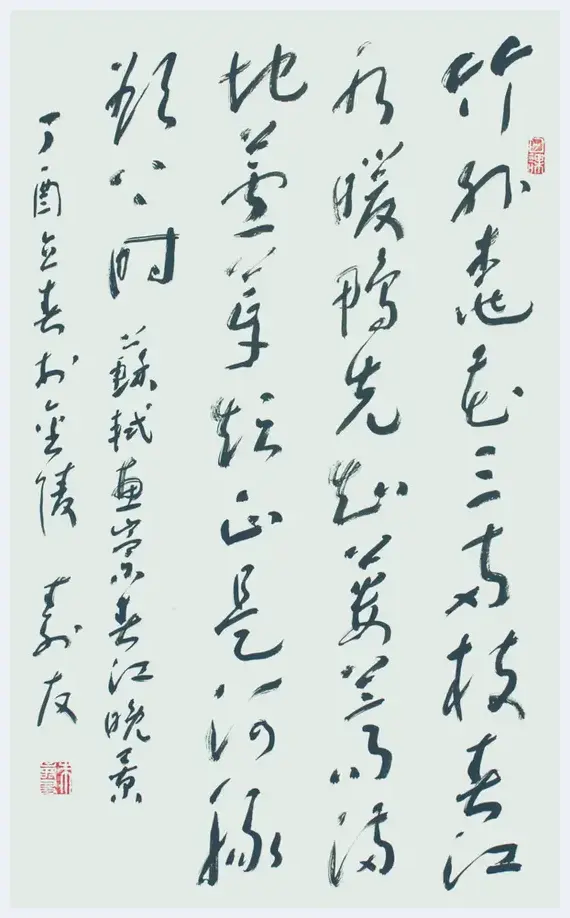 竹外桃花三两枝春江
水暖鴨先知蔞蒿满
地蘆芽短正是河豚
欲上时 蘇軾惠崇春江晚景
丁酉立春於金陵 壽友